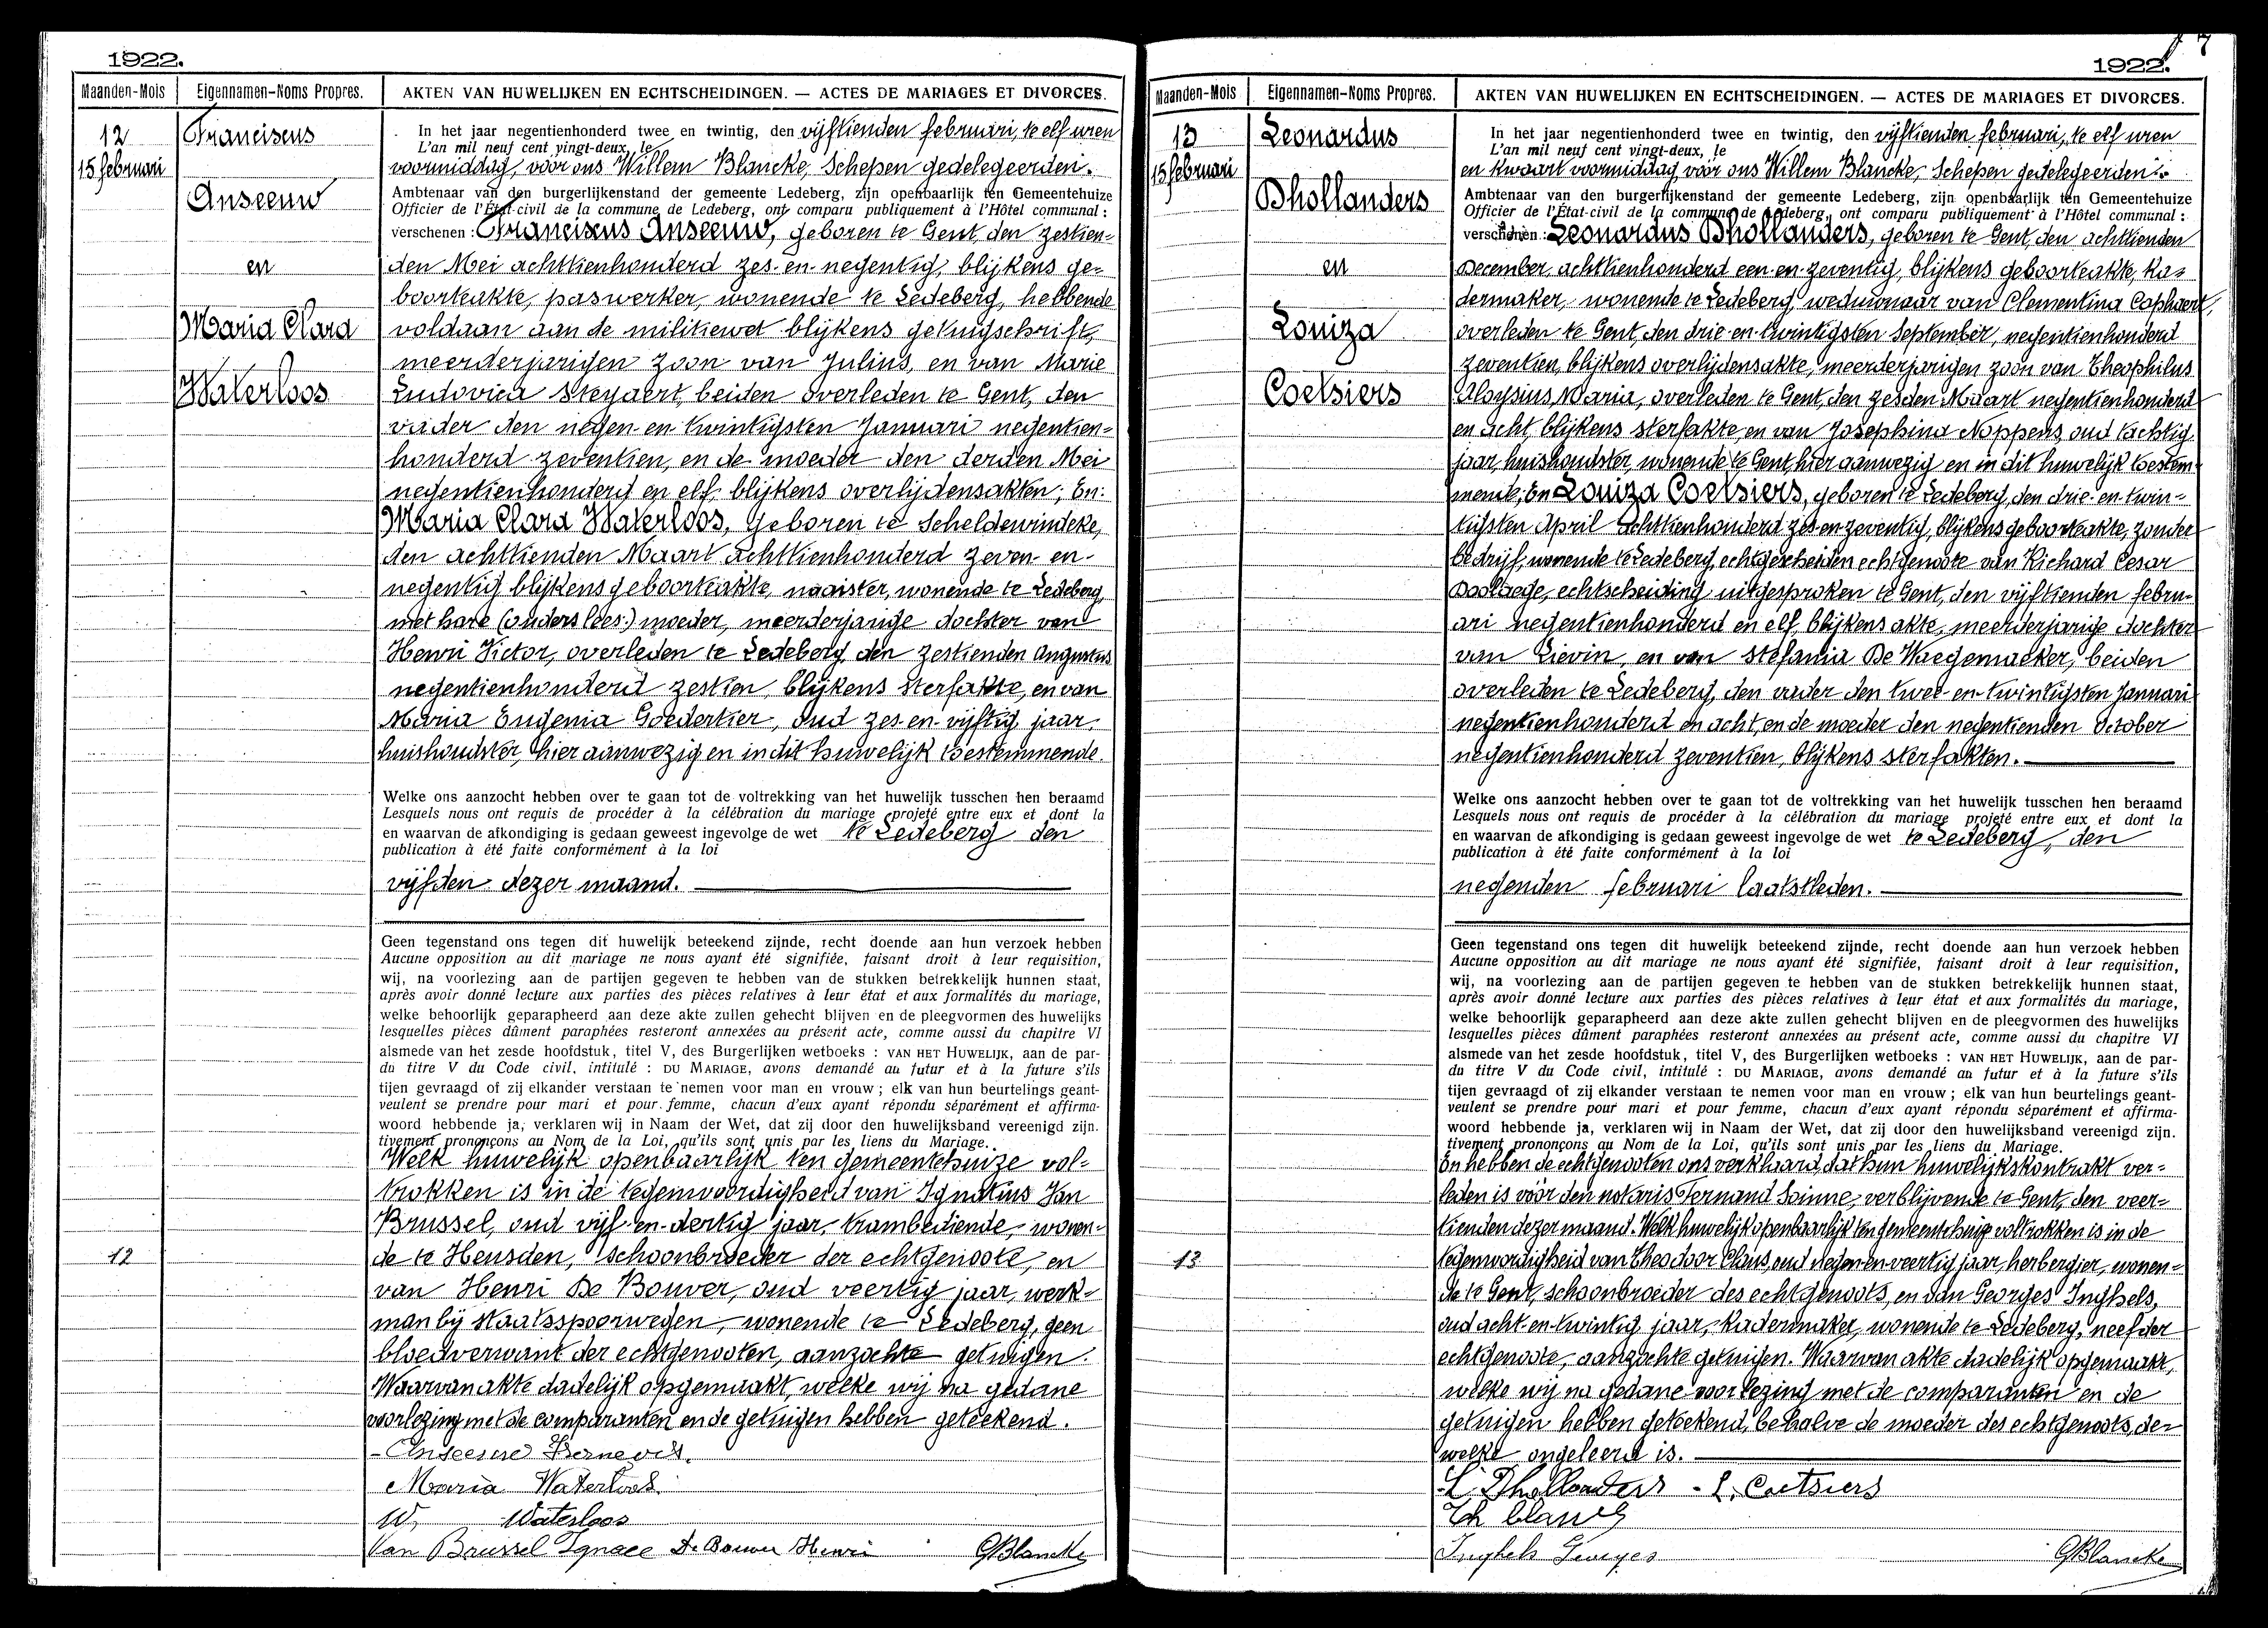 1922.
Maanden-Mois Eigennamen-Noms Propres. AKTEN VAN HUWELIJKEN EN ECHTSCHEIDINGEN. — ACTES DE MARIAGES ET DIVORCES.
12
15 februari
Franciscus
Anseeuw
en
Maria Clara
Waterloos
In het jaar negentienhonderd twee en twintig, den vijftienden februari, te elf uren
L'an mil neuf cent vingt-deux, le
voormiddag, vóór ons Willem Blancke, Schepen gedelegeerden.
Ambtenaar van den burgerlijkenstand der gemeente Ledeberg, zijn openbaarlijk ten Gemeentehuize
Officier de l'État-civil de la commune de Ledeberg, ont comparu publiquement à l'Hôtel communal :
verschenen : Franciscus Anseeuw, geboren te Gent, den zestien=
den Mei achttienhonderd zes-en-negentig, blijkens ge=
boorteakte, paswerker, wonende te Ledeberg, hebbende
voldaan aan de militiewet blijkens getuigschrift,
meerderjarigen zoon van Julius, en van Marie
Ludovica Steyaert, beiden overleden te Gent, den
vader den negen-en-twintigsten Januari negentien=
honderd zeventien, en de moeder den derden Mei
negentienhonderd en elf, blijkens overlijdensakten; En:
Maria Clara Waterloos, geboren te Scheldewindeke,
den achttienden Maart achttienhonderd zeven-en-
negentig blijkens geboorteakte, naaister, wonende te Ledeberg,
met hare (ouders lees:) moeder, meerderjarige dochter van
Henri Victor, overleden te Ledeberg, den zestienden Augustus
negentienhonderd zestien, blijkens sterfakte, en van
Maria Eugenia Goedertier, oud zes-en-vijftig jaar,
huishoudster, hier aanwezig en in dit huwelijk toestemmende.
Welke ons aanzocht hebben over te gaan tot de voltrekking van het huwelijk tusschen hen beraamd
Lesquels nous ont requis de procéder à la célébration du mariage projeté entre eux et dont la
en waarvan de afkondiging is gedaan geweest ingevolge de wet te Ledeberg den
publication à été faite conformément à la loi
vijfden dezer maand.
Geen tegenstand ons tegen dit huwelijk beteekend zijnde, recht doende aan hun verzoek hebben
Aucune opposition au dit mariage ne nous ayant été signifiée, faisant droit à leur requisition,
wij, na voorlezing aan de partijen gegeven te hebben van de stukken betrekkelijk hunnen staat,
après avoir donné lecture aux parties des pièces relatives à leur état et aux formalités du mariage,
welke behoorlijk geparapheerd aan deze akte zullen gehecht blijven en de pleegvormen des huwelijks
lesquelles pièces dûment paraphées resteront annexées au présent acte, comme aussi du chapitre VI
alsmede van het zesde hoofdstuk, titel V, des Burgerlijken wetboeks : VAN HET HUWELIJK, aan de par-
du titre V du Code civil, intitulé : DU MARIAGE, avons demandé au futur et à la future s'ils
tijen gevraagd of zij elkander verstaan te nemen voor man en vrouw ; elk van hun beurtelings geant-
veulent se prendre pour mari et pour femme, chacun d'eux ayant répondu séparément et affirma-
woord hebbende ja, verklaren wij in Naam der Wet, dat zij door den huwelijksband vereenigd zijn.
tivement prononçons au Nom de la Loi, qu'ils sont unis par les liens du Mariage.
Welk huwelijk openbaarlijk ten gemeentehuize vol=
trokken is in de tegenwoordigheid van Ignatius Van
Brussel, oud vijf-en-dertig jaar, trambediende, wonen=
12
de te Heusden, schoonbroeder der echtgenoote, en
van Henri De Bouver, oud veertig jaar, werk=
man bij staatsspoorwegen, wonende te Ledeberg, geen
bloedverwant der echtgenooten, aanzochte getuigen.
Waarvan akte dadelijk opgemaakt, welke wij na gedane
voorlezing met de comparanten en de getuigen hebben geteekend.
- Anseeuw
Maria Waterloos
W, Waterloos
Van Brussel Ignace De Bouver Henri GBlancke
1922. 7
Maanden-Mois Eigennamen-Noms Propres. AKTEN VAN HUWELIJKEN EN ECHTSCHEIDINGEN. — ACTES DE MARIAGES ET DIVORCES.
13
15 februari
Leonardus
Dhollanders
en
Louiza
Coetsiers
In het jaar negentienhonderd twee en twintig, den vijftienden februari, te elf uren
L'an mil neuf cent vingt-deux, le
en kwaart voormiddag, vóór ons Willem Blancke, Schepen gedelegeerden
Ambtenaar van den burgerlijkenstand der gemeente Ledeberg, zijn openbaarlijk ten Gemeentehuize
Officier de l'État-civil de la commune de Ledeberg, ont comparu publiquement à l'Hôtel communal :
verschenen : Leonardus Dhollanders, geboren te Gent, den achttienden
December, achttienhonderd een-en-zeventig, blijkens geboorteakte, ka=
dermaker, wonende te Ledeberg, weduwnaar van Clementina Caphaert,
overleden te Gent, den drie-en-twintigsten September, negentienhonderd
zeventien, blijkens overlijdensakte, meerderjarigen zoon van Theophilus
Aloysius, Maria, overleden te Gent, den zesden Maart negentienhonderd
en acht, blijkens sterfakte, en van Josephina Noppens, oud tachtig
jaar, huishoudster, wonende te Gent, hier aanwezig en in dit huwelijk toestem-
mende; En Louiza Coetsiers, geboren te Ledeberg, den drie-en-twin=
tigsten April achttienhonderd zes-en-zeventig, blijkens geboorteakte, zonder
bedrijf, wonende te Ledeberg, echtgescheiden echtgenoote van Richard Cesar
Daolaege, echtscheiding uitgesproken te Gent, den vijftienden febru-
ari negentienhonderd en elf, blijkens akte, meerderjarige dochter
van Lievin, en van Stefania De Waegemaeker, beiden
overleden te Ledeberg, den vader den twee-en-twintigsten Januari
negentienhonderd en acht, en de moeder den negentienden October
negentienhonderd zeventien, blijkens sterfakten.
Welke ons aanzocht hebben over te gaan tot de voltrekking van het huwelijk tusschen hen beraamd
Lesquels nous ont requis de procéder à la célébration du mariage projeté entre eux et dont la
en waarvan de afkondiging is gedaan geweest ingevolge de wet te Ledeberg, den
publication à été faite conformément à la loi
negenden februari laatstleden.
Geen tegenstand ons tegen dit huwelijk beteekend zijnde, recht doende aan hun verzoek hebben
Aucune opposition au dit mariage ne nous ayant été signifiée, faisant droit à leur requisition,
wij, na voorlezing aan de partijen gegeven te hebben van de stukken betrekkelijk hunnen staat,
après avoir donné lecture aux parties des pièces relatives à leur état et aux formalités du mariage,
welke behoorlijk geparapheerd aan deze akte zullen gehecht blijven en de pleegvormen des huwelijks
lesquelles pièces dûment paraphées resteront annexées au présent acte, comme aussi du chapitre VI
alsmede van het zesde hoofdstuk, titel V, des Burgerlijken wetboeks : VAN HET HUWELIJK, aan de par-
du titre V du Code civil, intitulé : DU MARIAGE, avons demandé au futur et à la future s'ils
tijen gevraagd of zij elkander verstaan te nemen voor man en vrouw ; elk van hun beurtelings geant-
veulent se prendre pour mari et pour femme, chacun d'eux ayant répondu séparément et affirma-
woord hebbende ja, verklaren wij in Naam der Wet, dat zij door den huwelijksband vereenigd zijn.
tivement prononçons au Nom de la Loi, qu'ils sont unis par les liens du Mariage.
En hebben de echtgenooten ons verklaard, dat hun huwelijkskontrakt ver=
leden is vóór den notaris Fernand Soinne, verblijvende te Gent, den veer=
tienden dezer maand. Welk huwelijk openbaarlijk ten gemeentehuize voltrokken is in de
13
tegenwoordigheid van Theodoor Claus, oud negen-en-veertig jaar, herbergier, wonen=
de te Gent, schoonbroeder des echtgenoots, en van Georges Inghels,
oud acht-en-twintig jaar, kadermaker, wonende te Ledeberg, neef der
echtgenoote, aanzochte getuigen. Waarvan akte dadelijk opgemaakt,
welke wij na gedane voorlezing met de comparanten en de
getuigen hebben geteekend, behalve de moeder des echtgenoots, de=
welke ongeleerd is.
L. Dhollanders - L. Coetsiers
Th Claus
Inghels Georges GBlancke